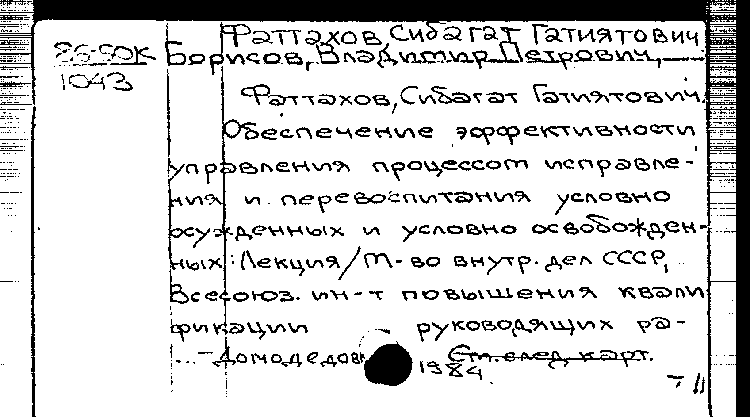 Фаттахов, Сибагат Гатиятович
86-50К Борисов, Владимир Петрович,
1043
Фаттахов, Сибагат Гатиятович.
Обеспечение эффективности
управления процессом исправле-
ния и перевоспитания условно
осужденных и условно освобожден-
ных: Лекция/М-во внутр. дел СССР,
Всесоюз. ин-т повышения квали
фикации руководящих ра-
...-Домодедово См. след. карт.
1984.